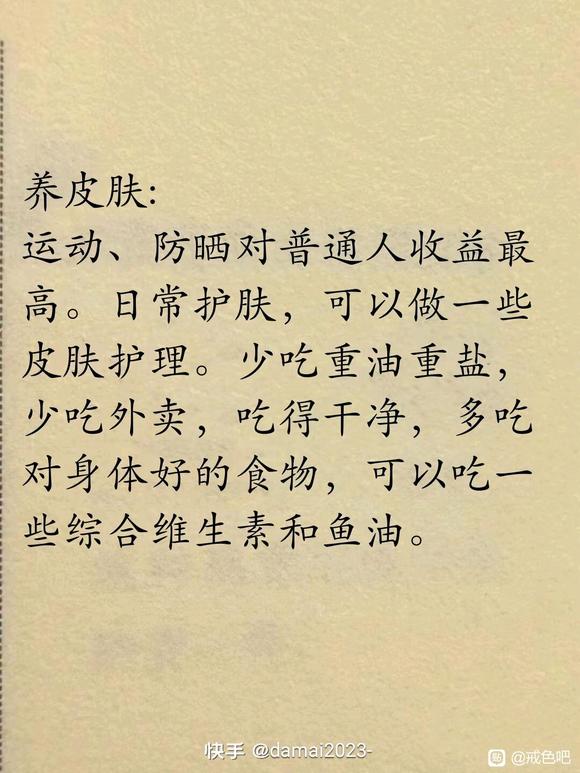 养皮肤:
运动、防晒对普通人收益最
高。日常护肤，可以做一些
皮肤护理。少吃重油重盐，
少吃外卖，吃得干净，多吃
对身体好的食物，可以吃一
些综合维生素和鱼油。
快手 @damai2023-
贴 @戒色吧